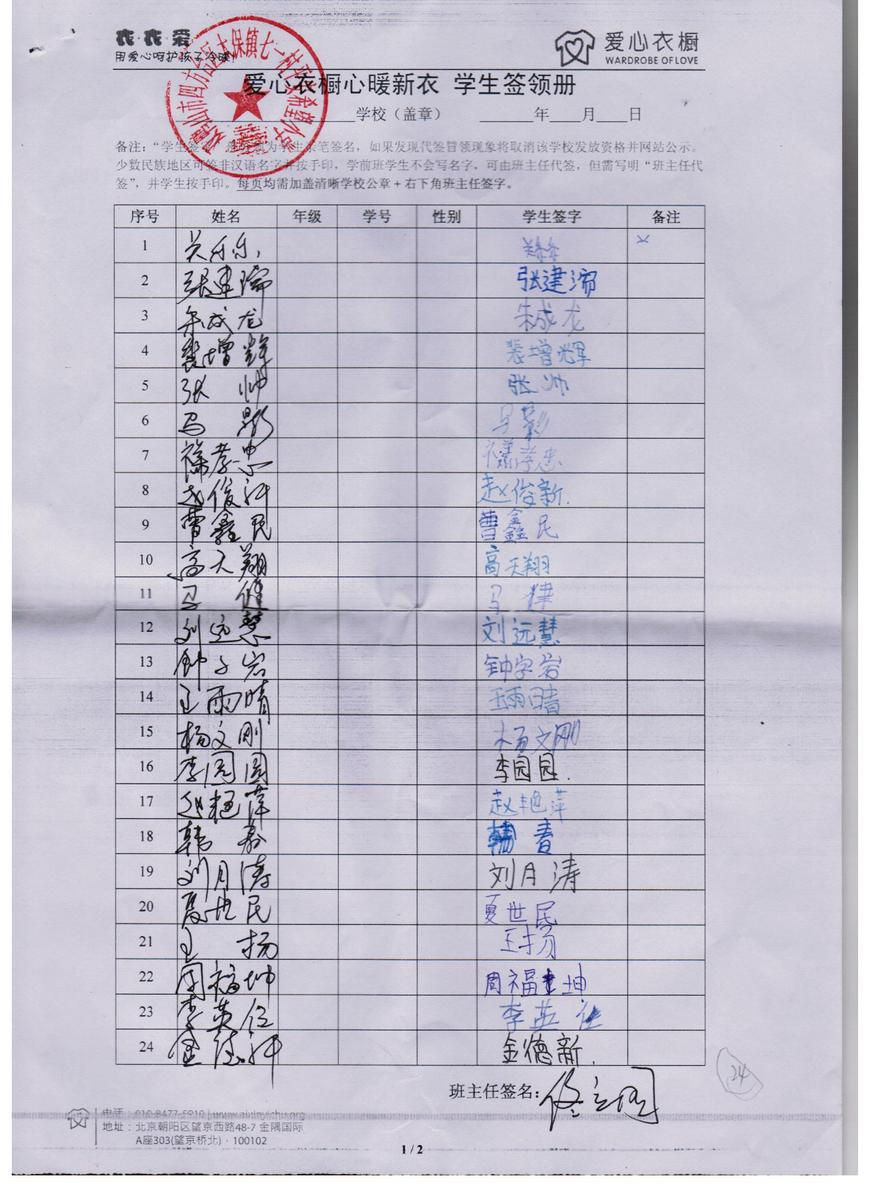 衣衣爱
用爱心呵护孩子冷暖!
爱心衣橱
WARDROBE OF LOVE
爱心衣橱心暖新衣 学生签领册
学校（盖章） 年 月 日
少数民族地区可签非汉语名字并按手印，学前班学生不会写名字，可由班主任代签，但需写明“班主任代
签”，并学生按手印。每页均需加盖清晰学校公章+右下角班主任签字。
序号 姓名 年级 学号 性别 学生签字 备注
1 ×
2 张建瑞 张建瑞
3 朱成龙 朱成龙
4 裴增辉 裴增辉
5 张帅 张帅
6 马影 马影
7
8 赵俊新 赵俊新.
9 曹鑫民 曹鑫民
10 高天翔 高天翔
11 马健 马健
12 刘远慧 刘远慧
13 钟子岩 钟字岩
14 王雨晴 王雨晴
15 杨文刚 杨文刚
16 李园园 李园园.
17 赵艳萍 赵艳萍
18 韩春 韩春
19 刘月涛 刘月涛
20 夏世民 夏世民
21 王杨 王杨
22 周福坤 周福坤
23 李英
24 金德新 金德新.
班主任签名:
24
电话：010-8477-5910 | www.aixinyichu.org
地址：北京朝阳区望京西路48-7 金隅国际
A座303(望京桥北)·100102
1 / 2